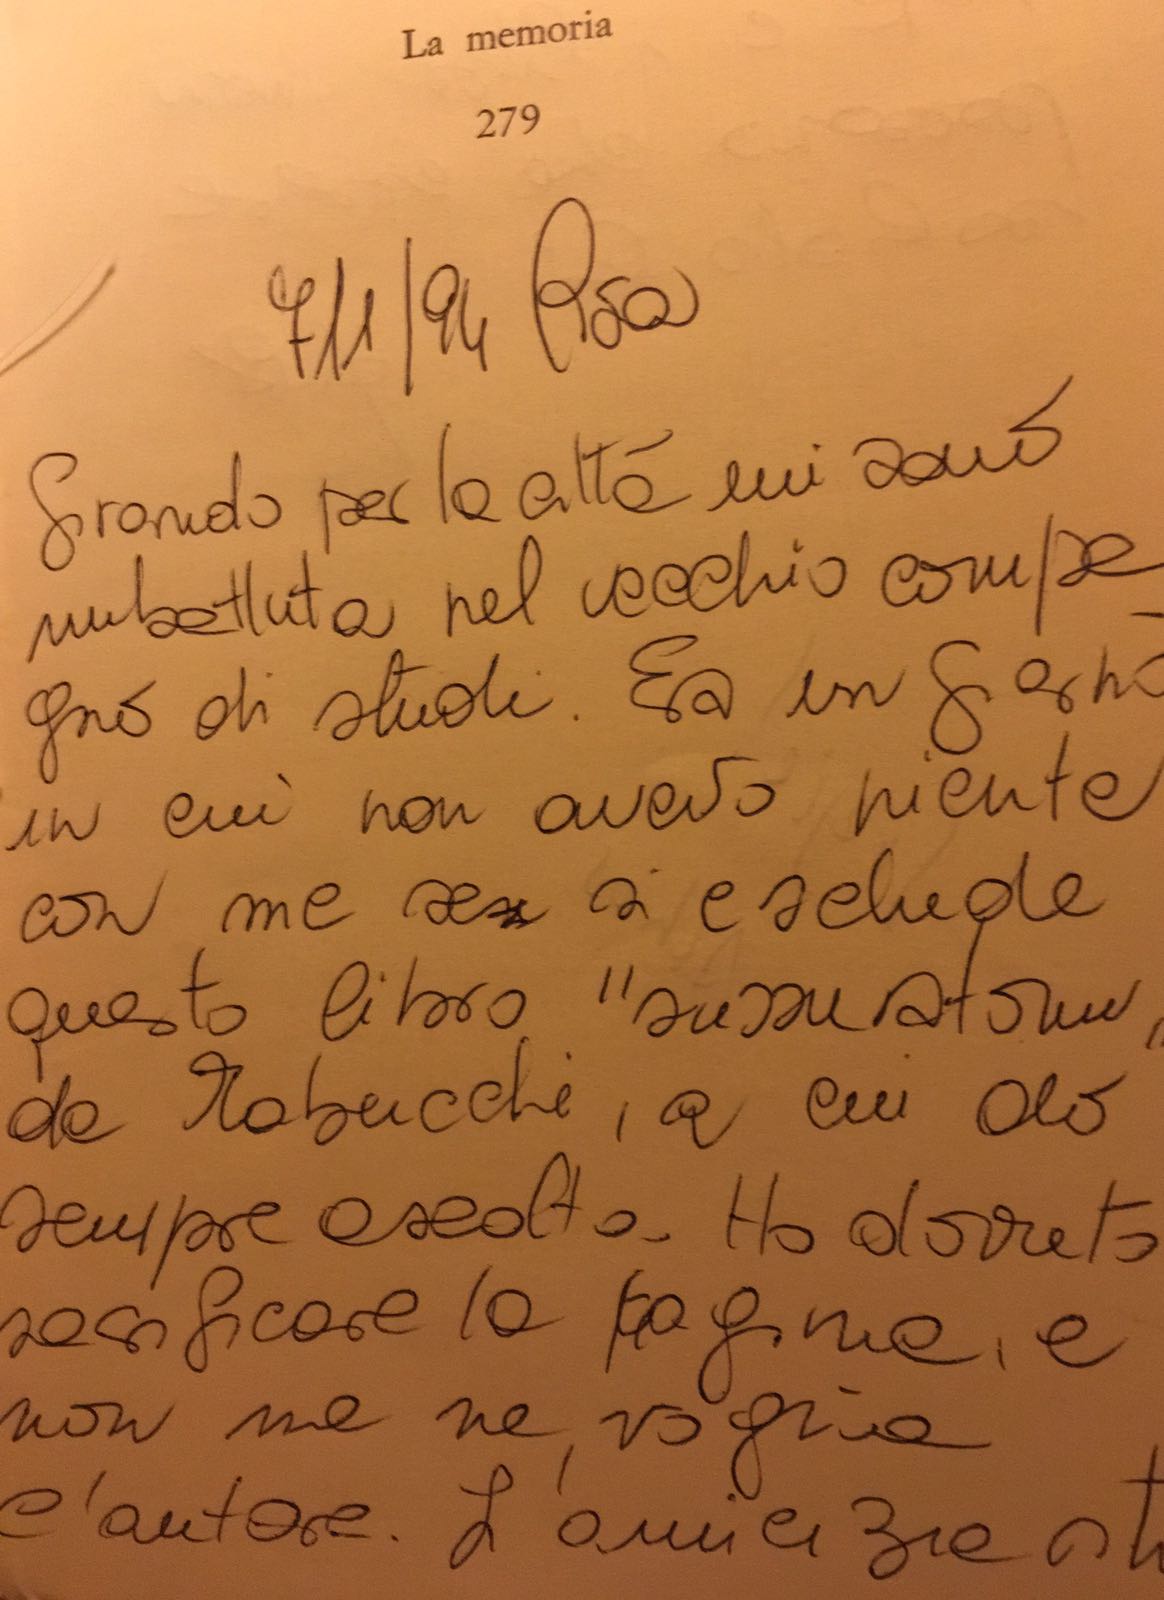 La memoria
279
7/1/94 Pisa
Girando per la città mi sono
imbattuta nel vecchio compa
gno di studi. Era un giorno
in cui non avevo niente
con me se si esclude
questo libro "sussurato"
da Tabucchi, a cui do
sempre ascolto. Ho dovuto
sacrificare la pagina, e
non me ne voglia
l'autore. L'amicizia